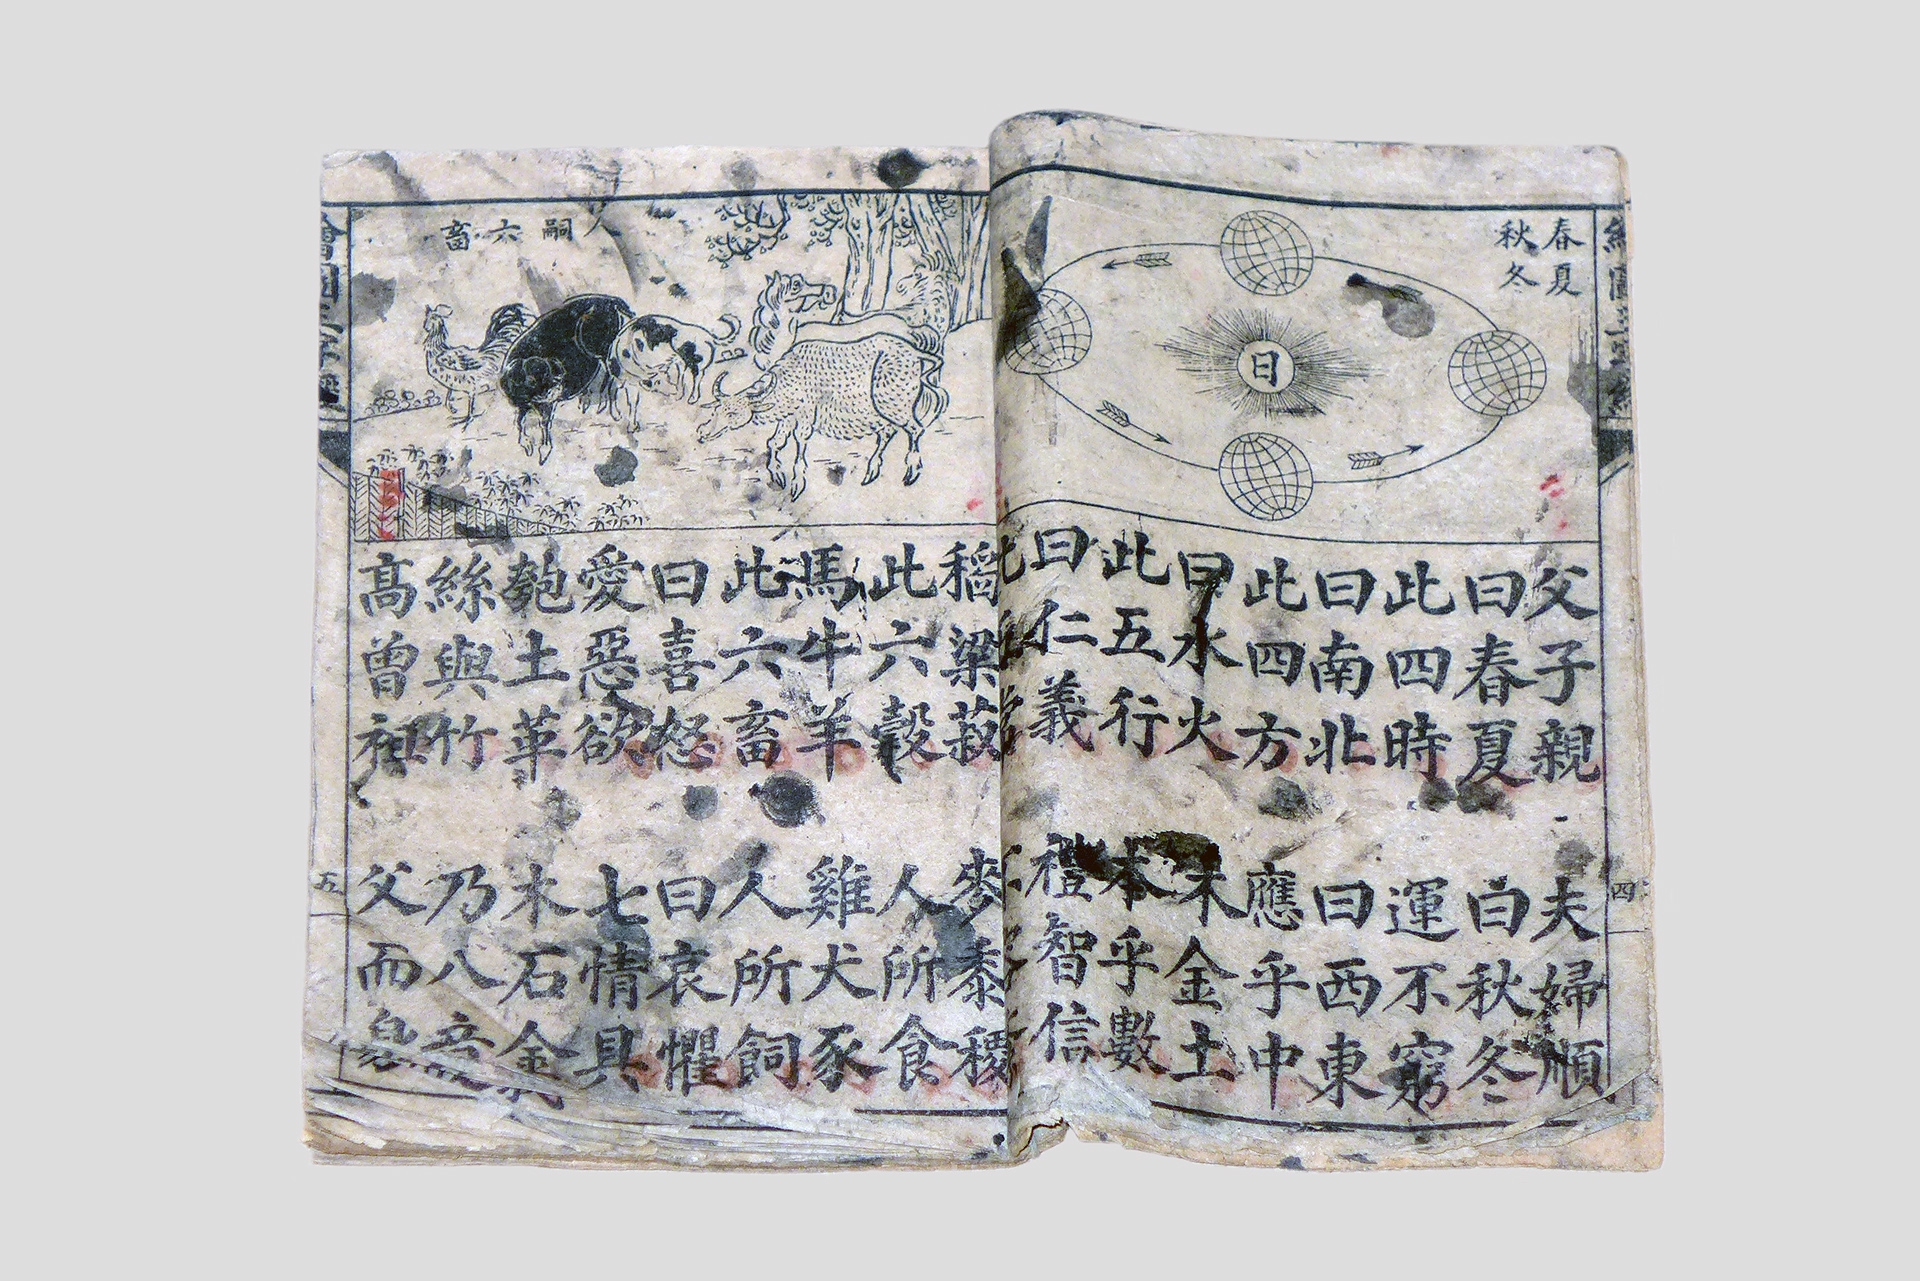 春夏
秋冬
日
父子親 夫婦順
曰春夏 曰秋冬
此四時 運不窮
曰南北 曰西東
此四方 應乎中
曰水火 木金土
此五行 本乎數
曰仁義 禮智信
四
人嗣六畜
稻梁菽 麥黍稷
此六穀 人所食
馬牛羊 雞犬豕
此六畜 人所飼
曰喜怒 曰哀懼
愛惡欲 七情具
匏土革 木石金
絲與竹 乃八音
高曾祖 父而身
繪圖三字經
五